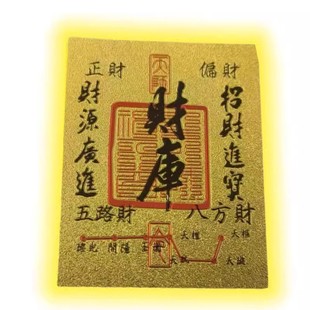 正財
偏財
財源廣進
財庫
招財進寶
五路財
八方財
開陽
天權